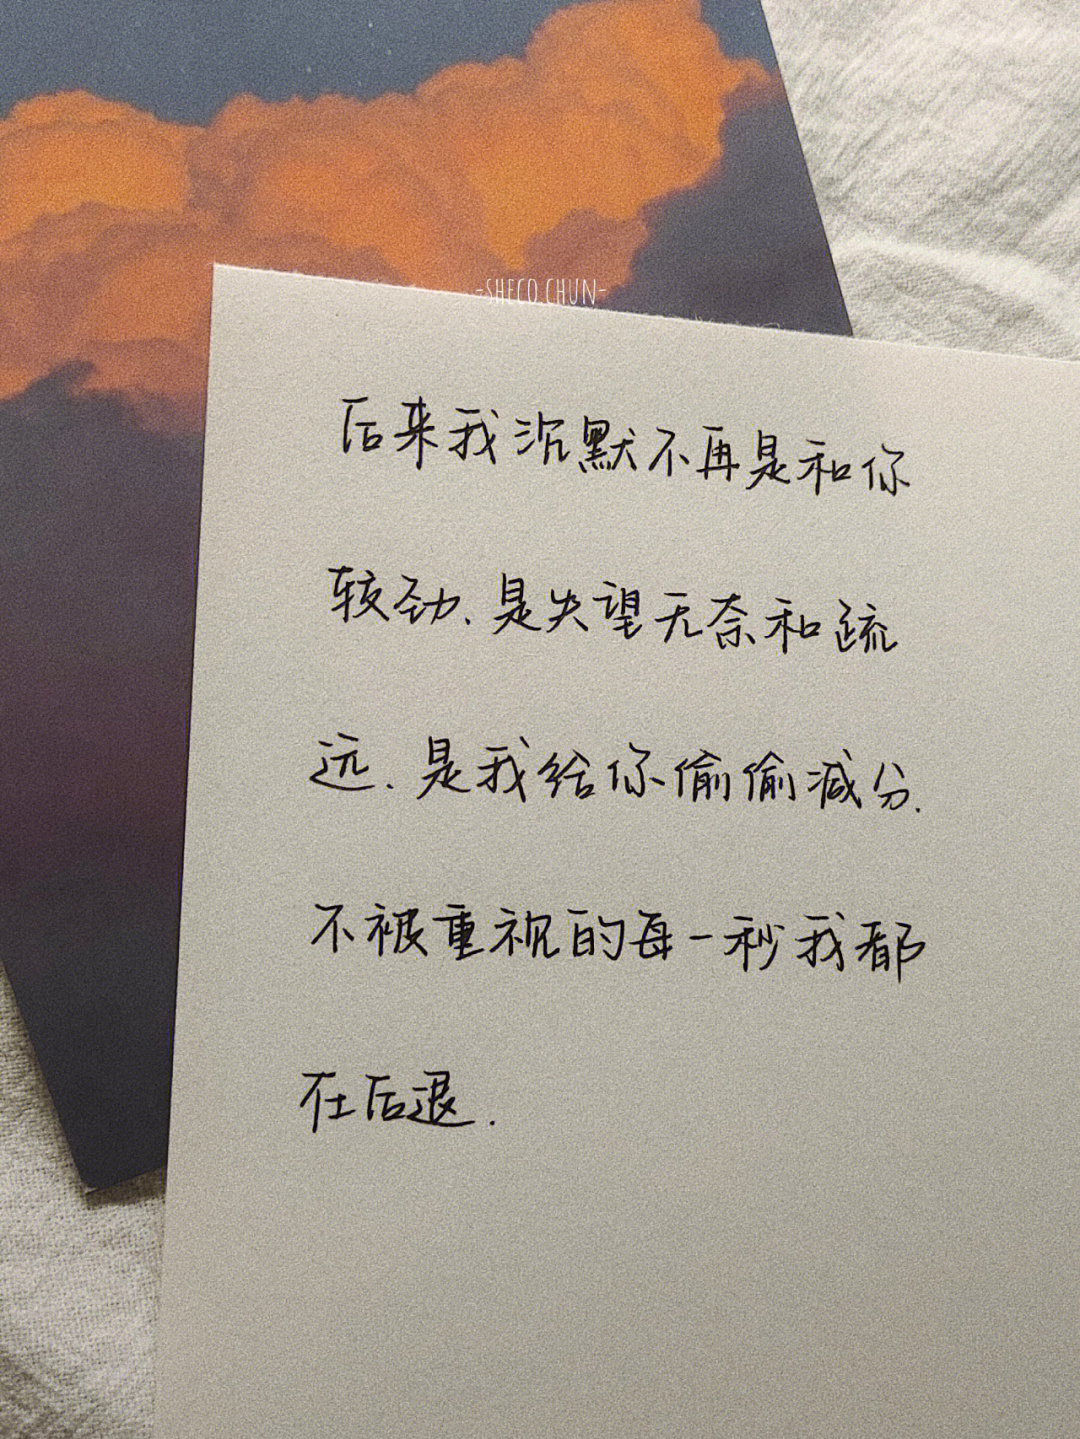 -SHECO.CHUN-
后来我沉默不再是和你
较劲.是失望无奈和疏
远.是我给你偷偷减分.
不被重视的每一秒我都
在后退.